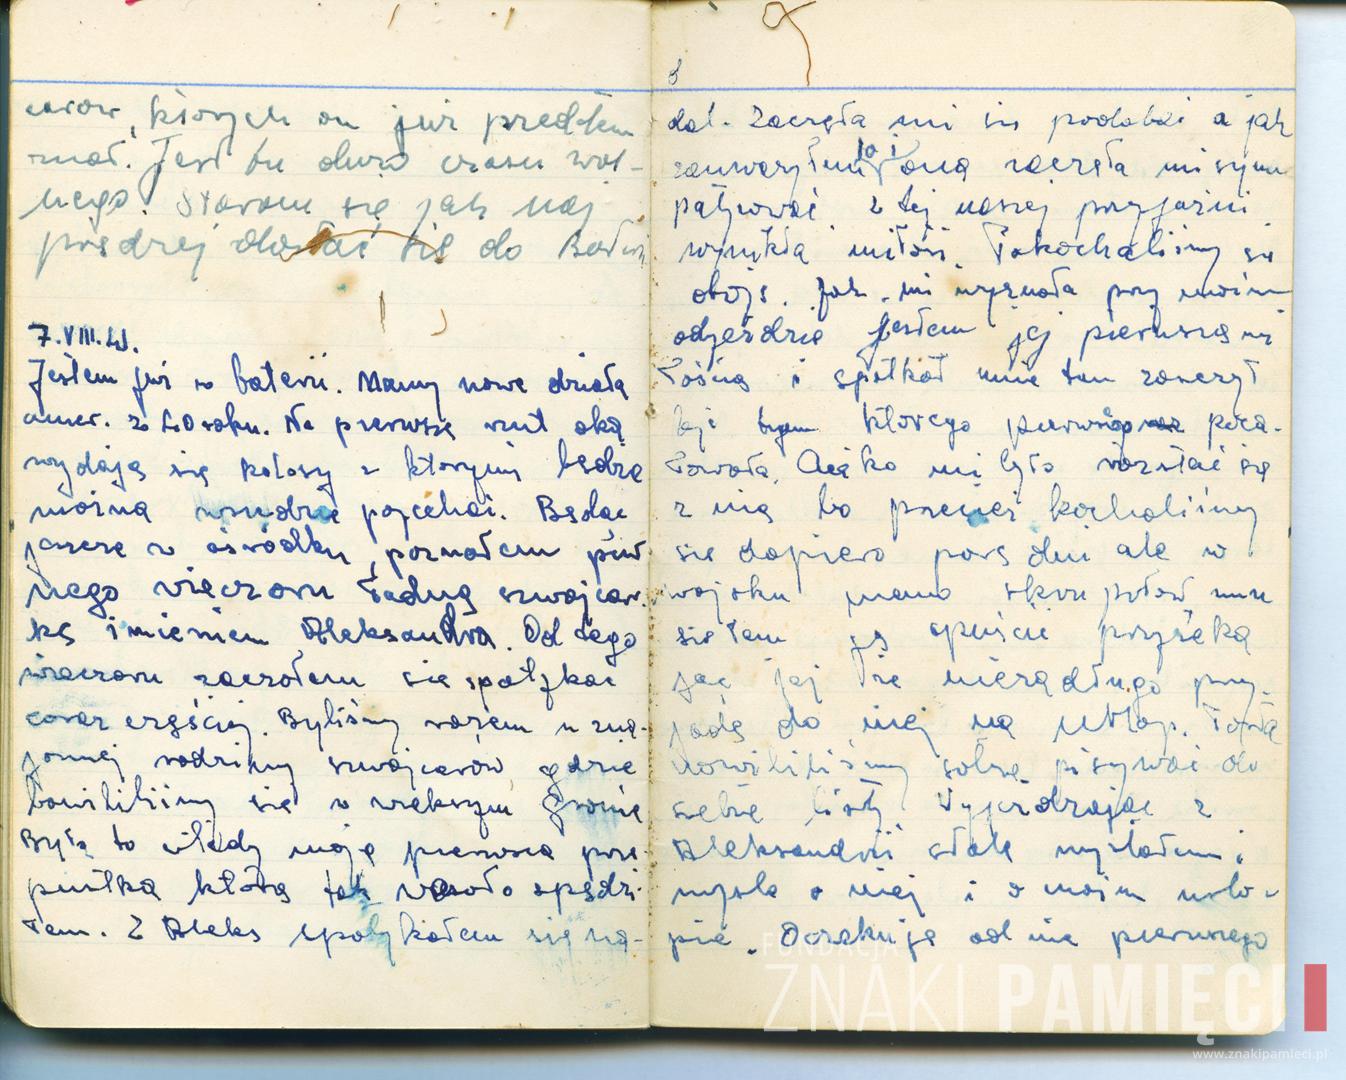 których on już przedtem
znał. Jest tu dużo czasu wol-
nego. Staram się jak naj
prędzej dostać się do
7.VIII.
Jestem już w baterii. Mamy nowe działa
amer. z 40 roku. Na pierwszy rzut oka
wydają się kolosy z którymi będzie
można pojechać. Będąc
jeszcze w ośrodku, poznałem pew
nego wieczoru ładną szwajcar.
kę imieniem Aleksandra. Od tego
wieczoru zacząłem się spotykać
coraz częściej. Byliśmy razem u zna-
jomej rodziny szwajcarów, gdzie
bawiliśmy się w większym gronie
Była to wtedy moja pierwsza prze-
pustka którą tak wesoło spędzi-
łem. Z Aleks spotykałem się na-
8
dal. Zaczęła mi się podobać a jak
zauważyłem i ona zaczęła mi sympa
patyzować z tej naszej przyjaźni
wynikła miłość. Pokochaliśmy się
oboje. Jak mi wyznała przy moim
odjeździe Jestem jej pierwszą mi
łością i spotkał mnie ten zaszczyt
być tym którego pierwszego poca-
łowała. Ciężko mi było rozstać się
z nią bo przecież kochaliśmy
się dopiero parę dni ale w
wojsku mano
ją opuścić przyrzeka
jąc jej że niezadługo przy-
jadę do niej na urlop.
sobie pisywać do
siebie listy. Wyjeżdżając z
Aleksandrii stale myślałem i
myślę o niej i o moim urlo-
pie. Oczekuję od nie pierwszego
FUNDACJA
ZNAKI PAMIĘCI
www.znakipamieci.pl